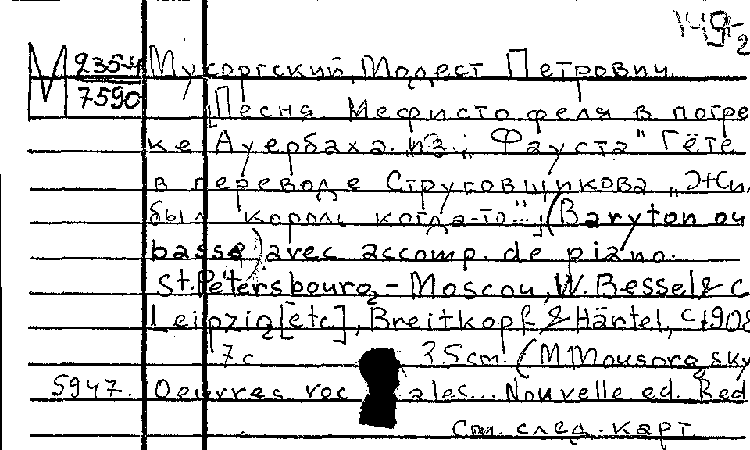 149-2
М 2354
7590
Мусоргский, Модест Петрович.
[Песня Мефистофеля в погре
ке Ауербаха. Из „Фауста" Гёте
в переводе Струговщикова „Жи
был король когда-то..."] (Baryton ou
basse) avec accomp. de piano.
St. Petersbourg - Moscou, W. Bessel & C
Leipzig [etc], Breitkopf & Härtel, c1908
7 с 35 cm (M Mousorgsky
5947. Oeuvres vocales... Nouvelle ed. Red
См. след. карт.